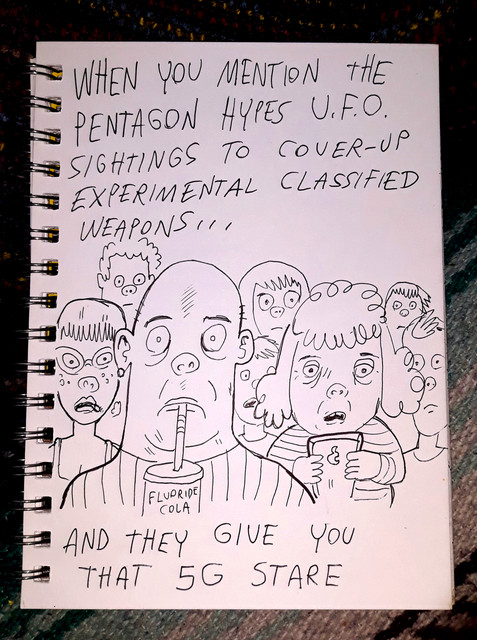 WHEN YOU MENTION THE
PENTAGON HYPES U.F.O.
SIGHTINGS TO COVER-UP
EXPERIMENTAL CLASSIFIED
WEAPONS...
FLUORIDE
COLA
AND THEY GIVE YOU
THAT 5G STARE